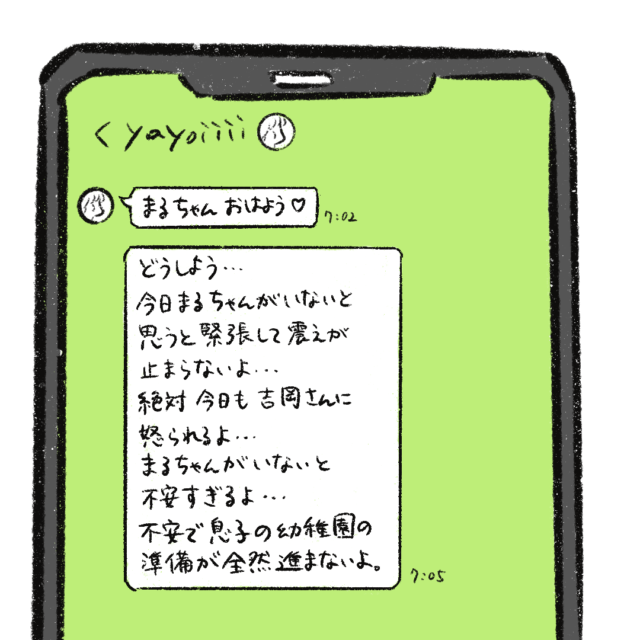 < yayoiiii
まるちゃん おはよう♡
7:02
どうしよう…
今日まるちゃんがいないと
思うと緊張して震えが
止まらないよ…
絶対 今日も 吉岡さんに
怒られるよ…
まるちゃんがいないと
不安すぎるよ…
不安で息子の幼稚園の
準備が全然進まないよ。
7:05